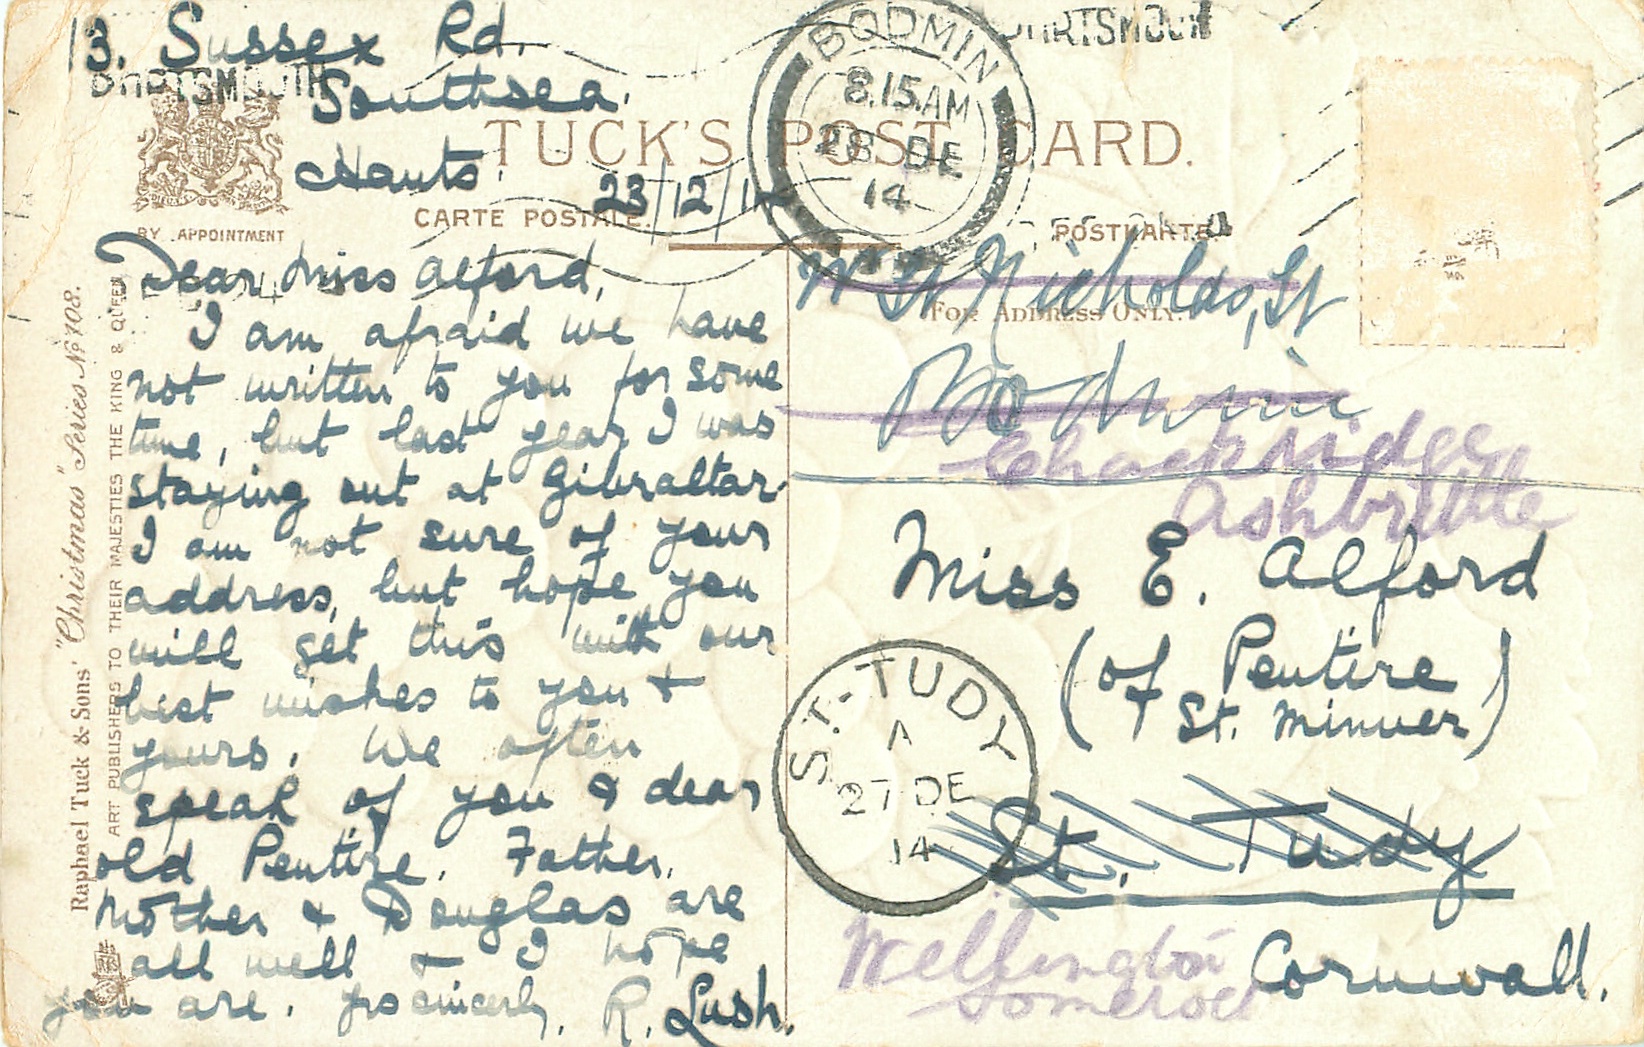 13. Sussex Rd.
Southsea.
Hants.
23/12/14
PORTSMOUTH
BODMIN
8.15AM
28 DE
14
TUCK'S POST CARD.
CARTE POSTALE.
POSTKARTE.
BY APPOINTMENT
FOR ADDRESS ONLY.
Raphael Tuck & Sons' "Christmas" Series No 108.
ART PUBLISHERS TO THEIR MAJESTIES THE KING & QUEEN
Dear Miss Alford,
I am afraid we have
not written to you for some
time, but last year I was
staying out at Gibraltar.
I am not sure of your
address, but hope you
will get this with our
best wishes to you &
yours. We often
speak of you & dear
old Pentire. Father,
Mother & Douglas are
all well & I hope
you are. Yrs sincerely,
R. Lush.
St Nicholas, St
Bodmin
Ashbrittle
Miss E. Alford
(of Pentire
St. Minver)
St. Tudy
Cornwall.
Wellington
Somerset
ST. TUDY
A
27 DE
14